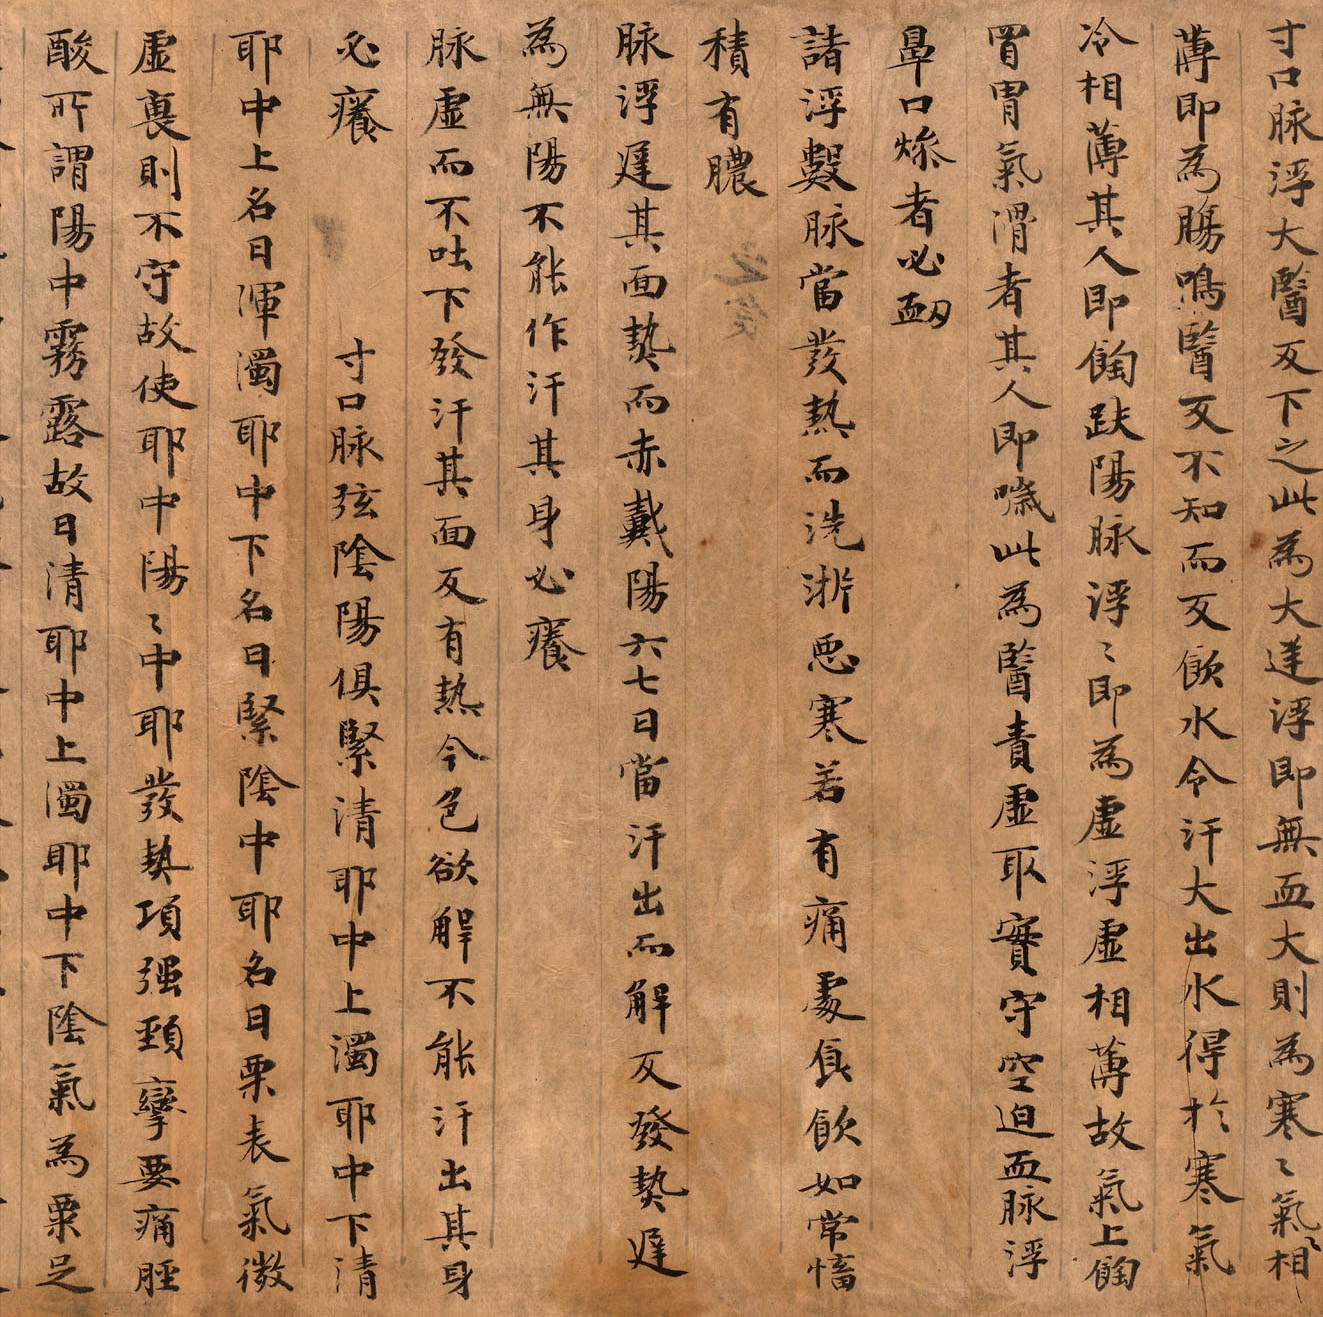 寸口脉浮大醫反下之此為大逆浮即無血大則為寒〻氣〻相
薄即為腸鳴醫反不知而反飲水令汗大出水得於寒氣
冷相薄其人即𩚬趺陽脉浮〻即為虛浮虛相薄故氣上𩚬
胃胃氣滑者其人即噦此為醫責虛取實守空迫血脉浮
鼻口燥者必衄
諸浮數脉當發熱而洗淅惡寒若有痛處食飲如常慉
積有膿
脉浮遲其面熱而赤戴陽六七日當汗出而解反發熱遲
為無陽不能作汗其身必癢
脉虛而不吐下發汗其面反有熱令色欲解不能汗出其身
必癢 寸口脉弦陰陽俱緊清耶中上濁耶中下清
耶中上名曰渾濁耶中下名曰緊陰中耶名曰栗表氣微
虛裏則不守故使耶中陽〻中耶發熱項强頸攣要痛脛
酸所謂陽中霧露故曰清耶中上濁耶中下陰氣為栗足